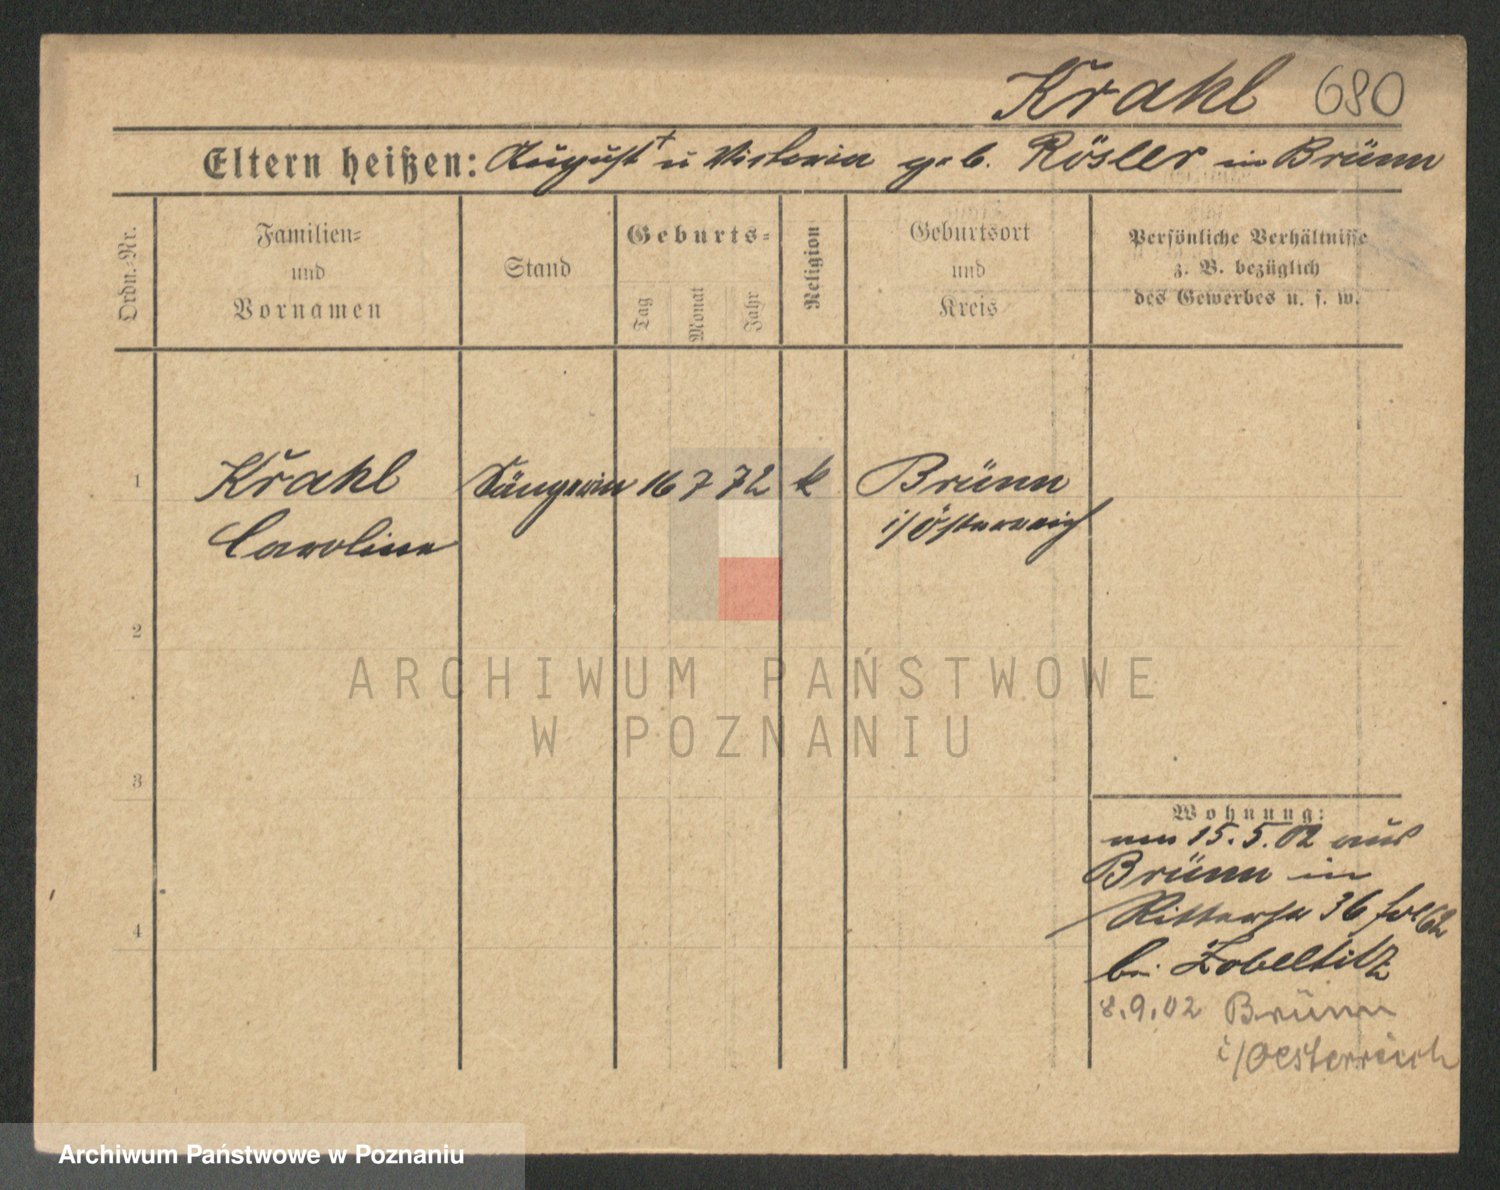 Krahl 680
Eltern heißen: August † u Victoria geb. Rösler in Brünn
Ordn.-Nr.
Familien-
und
Vornamen
Stand
Geburts-
Tag
Monat
Jahr
Religion
Geburtsort
und
Kreis
Persönliche Verhältnisse
z. B. bezüglich
des Gewerbes u. s. w.
1 Krahl Sängerin 16 7 72 k Brünn
Caroline i/Österreich
2
ARCHIWUM PAŃSTWOWE
W POZNANIU
3
Wohnung:
am 15.5.02 aus
Brünn in
4 Ritterstr 36
bei Zobeltitz
8.9.02 Brünn
i/Oesterreich
Archiwum Państwowe w Poznaniu